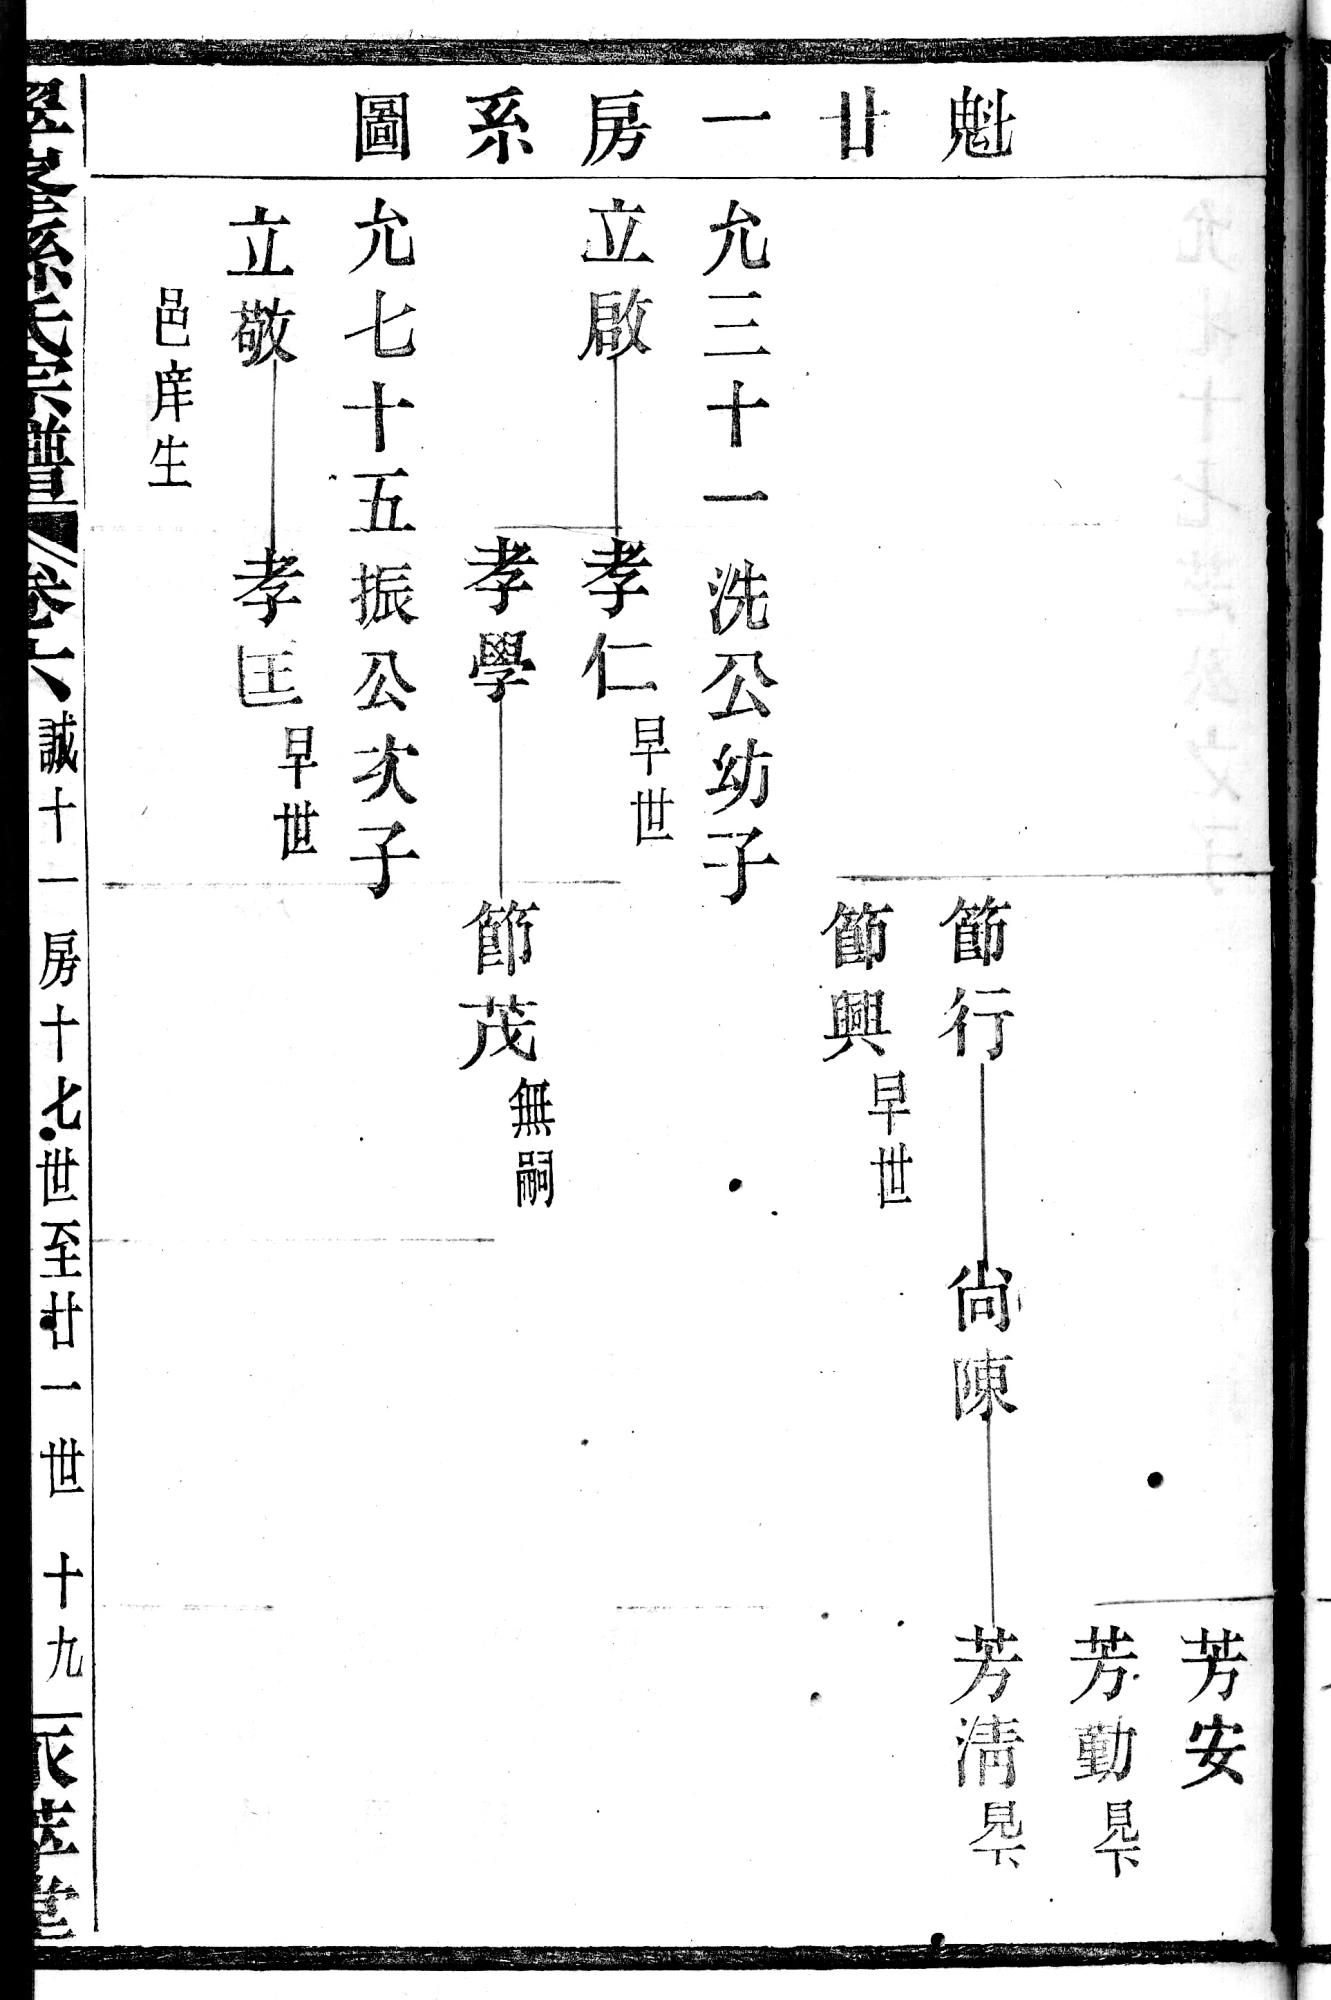 魁廿一房系圖
芳安
芳勤見下
節行 尙陳 芳清見下
節興早世
允三十一洗公幼子
立啟 孝仁早世
孝學 節茂無嗣
允七十五振公次子
立敬 孝匡早世
邑庠生
孫氏宗譜 卷六 誠十一房十七世至廿一世 十九 萃堂